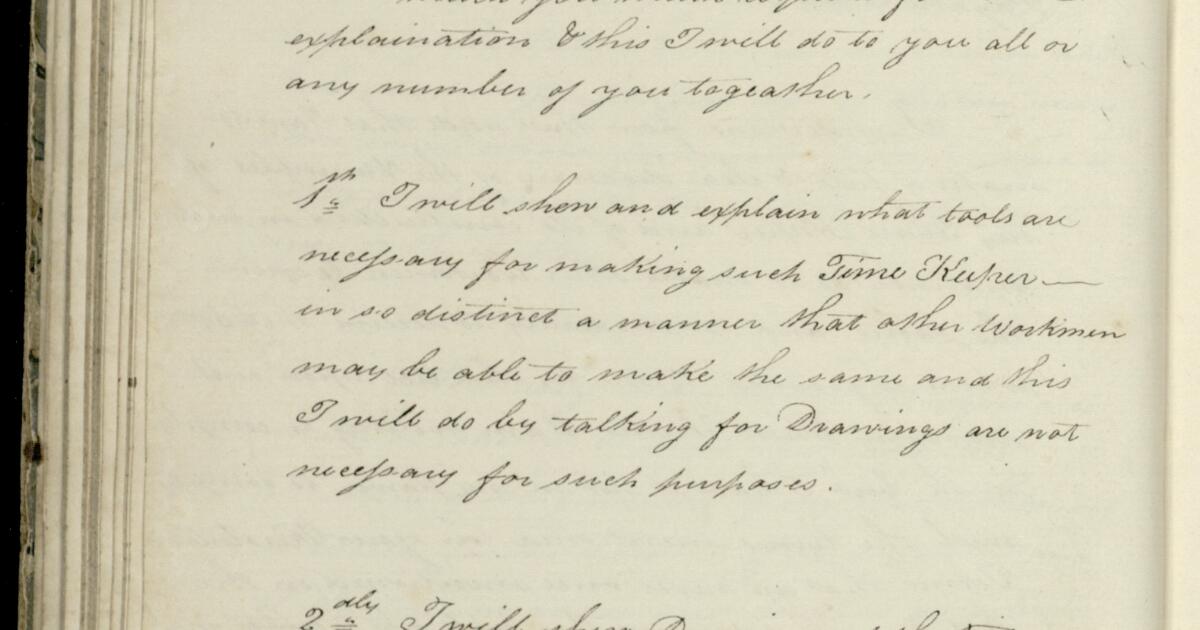 explaination & this I will do to you all or
any number of you togeather.
1th I will shew and explain what tools are
necessary for making such Time Keeper —
in so distinct a manner that other Workmen
may be able to make the same and this
I will do by talking for Drawings are not
necessary for such purposes.
2dly I will shew